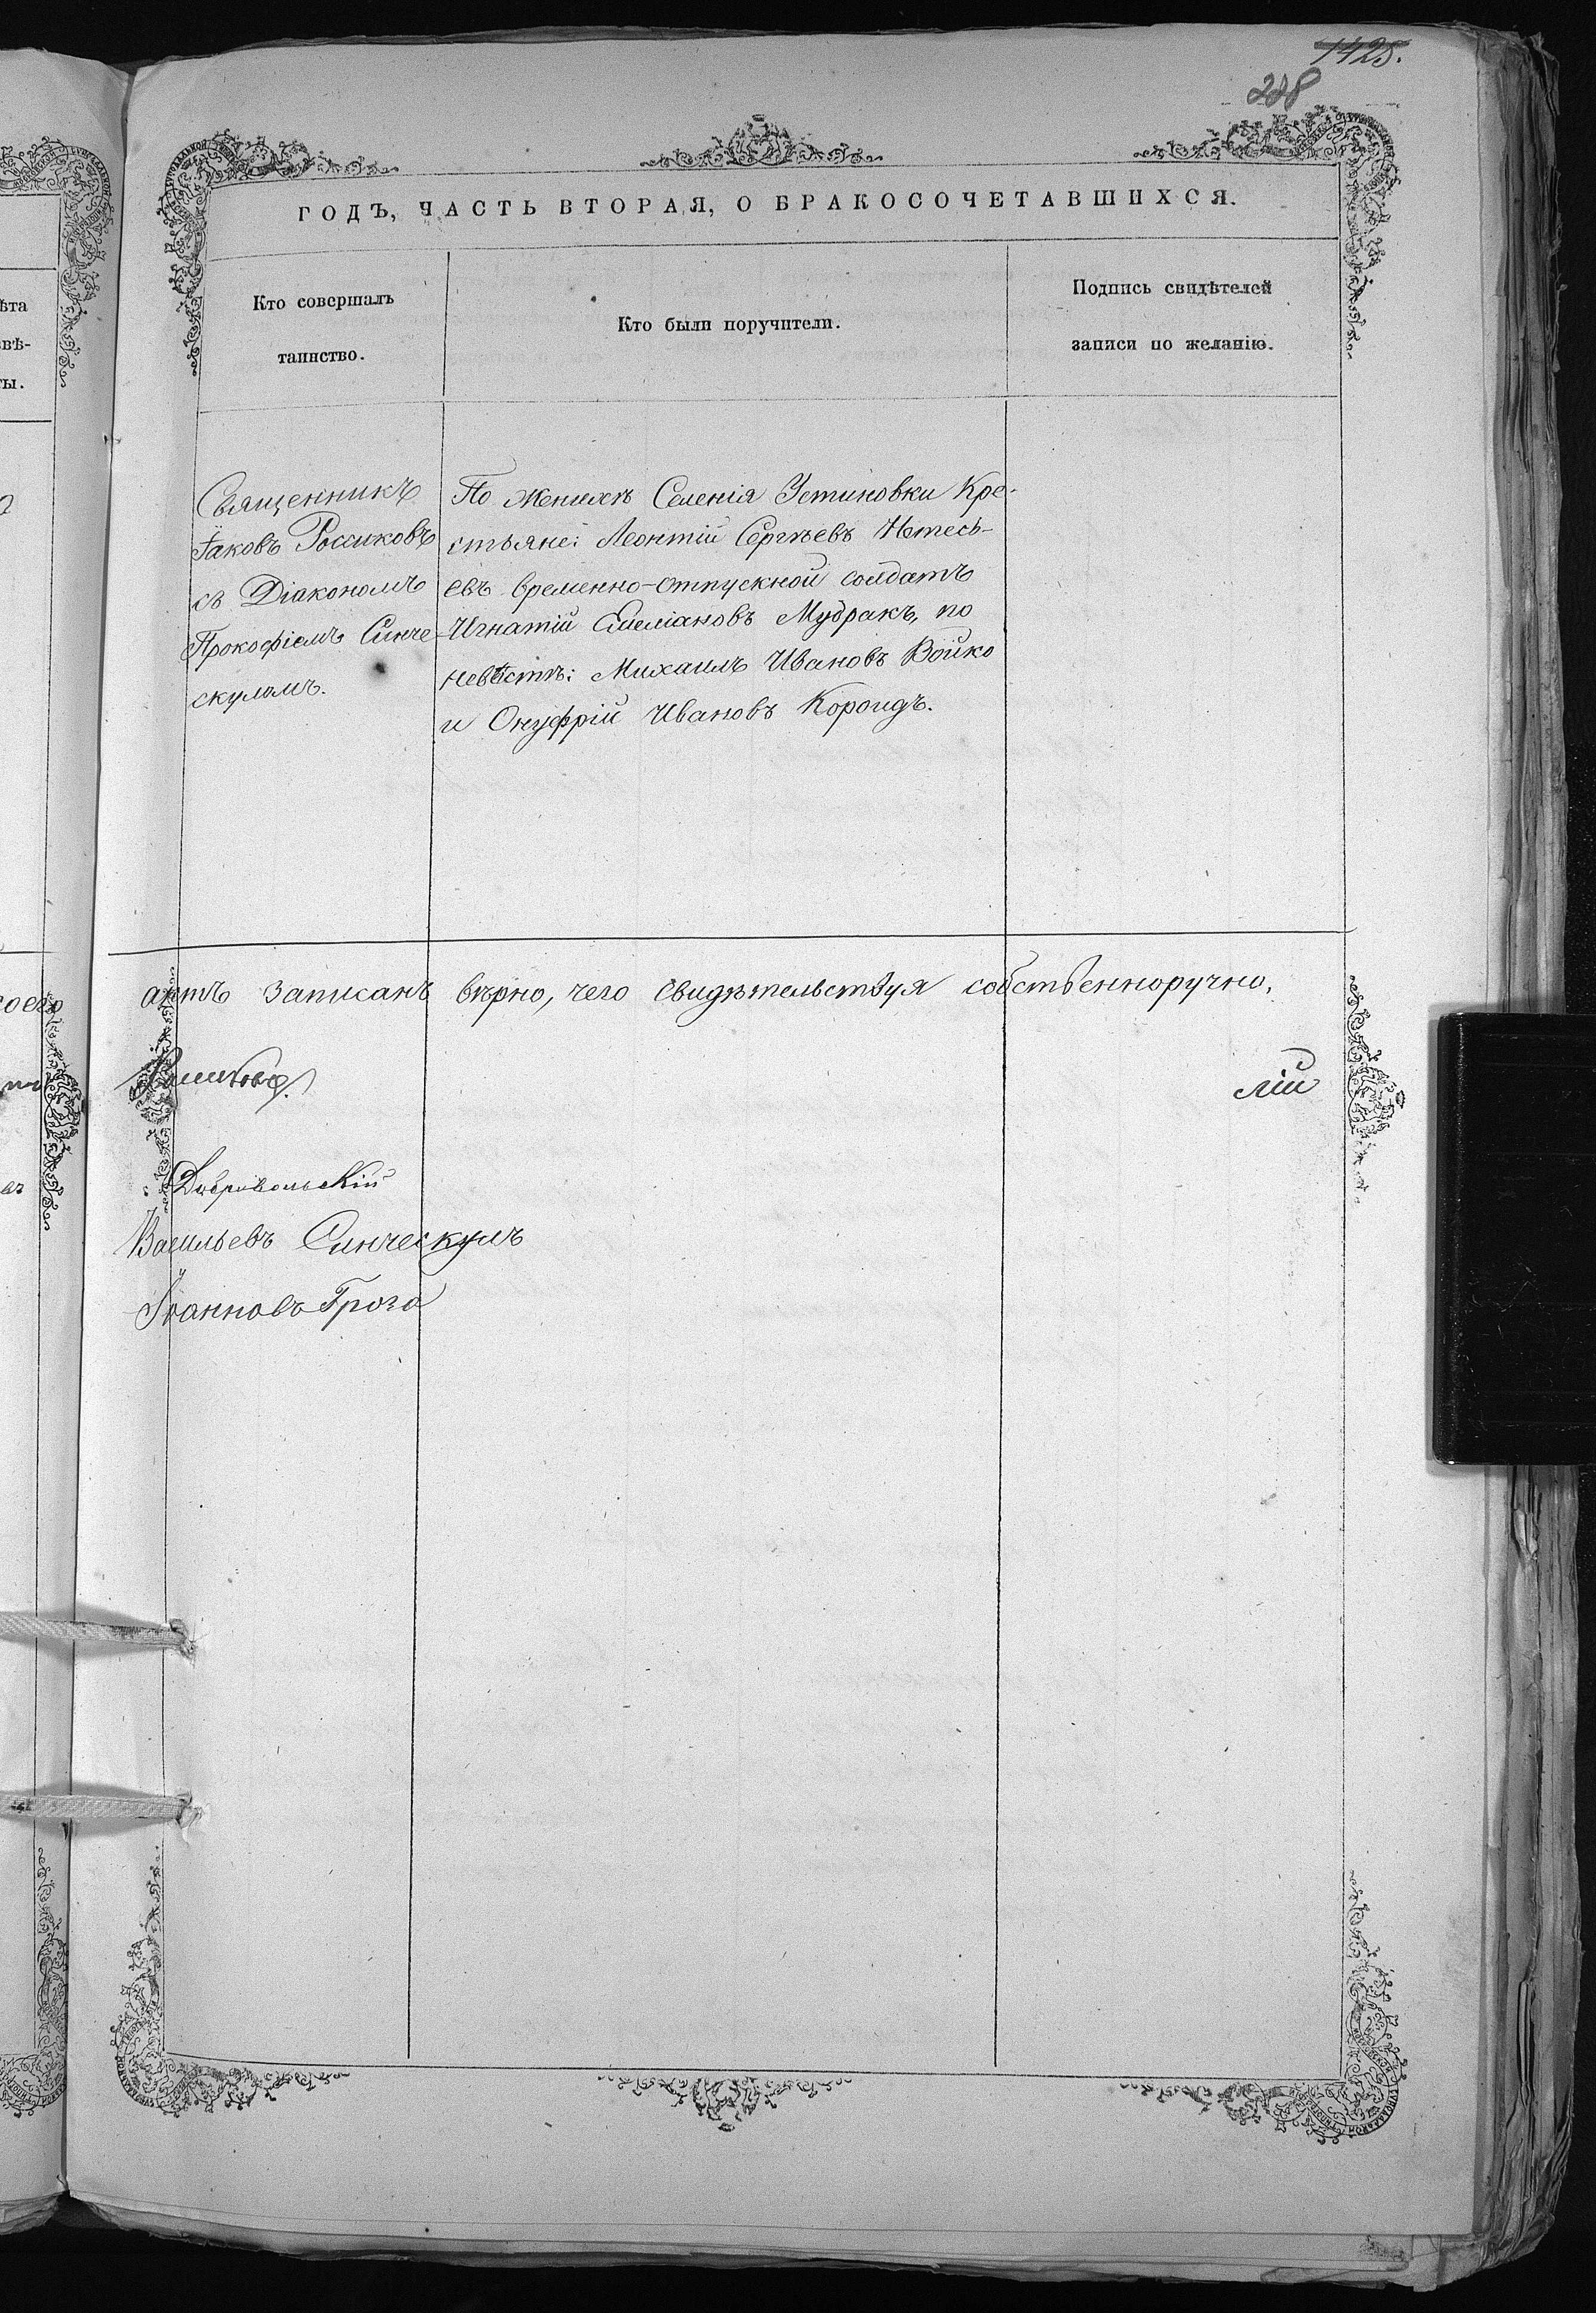 1425.
228
ГОДЪ, ЧАСТЬ ВТОРАЯ, О БРАКОСОЧЕТАВШИХСЯ.
Кто совершалъ
таинство.
Кто были поручители.
Подпись свидѣтелей
записи по желанію.
Священникъ
Іаковъ Россиковъ
съ Діакономъ
Прокофіемъ Синче-
скуломъ.
По Женихѣ Селенія Устиновки Кре-
стьяне: Леонтій Сергѣевъ Нетесь-
евъ временно-отпускной солдатъ
Игнатій Емеліановъ Мудракъ, по
невѣстѣ: Михаилъ Ивановъ Войко
и Онуфрій Ивановъ Короидъ.
актъ записанъ вѣрно, чего свидѣтельствуя собственноручно,
лій
Добровольскій
Васильевъ Синческулъ
Іоанновъ Гроза